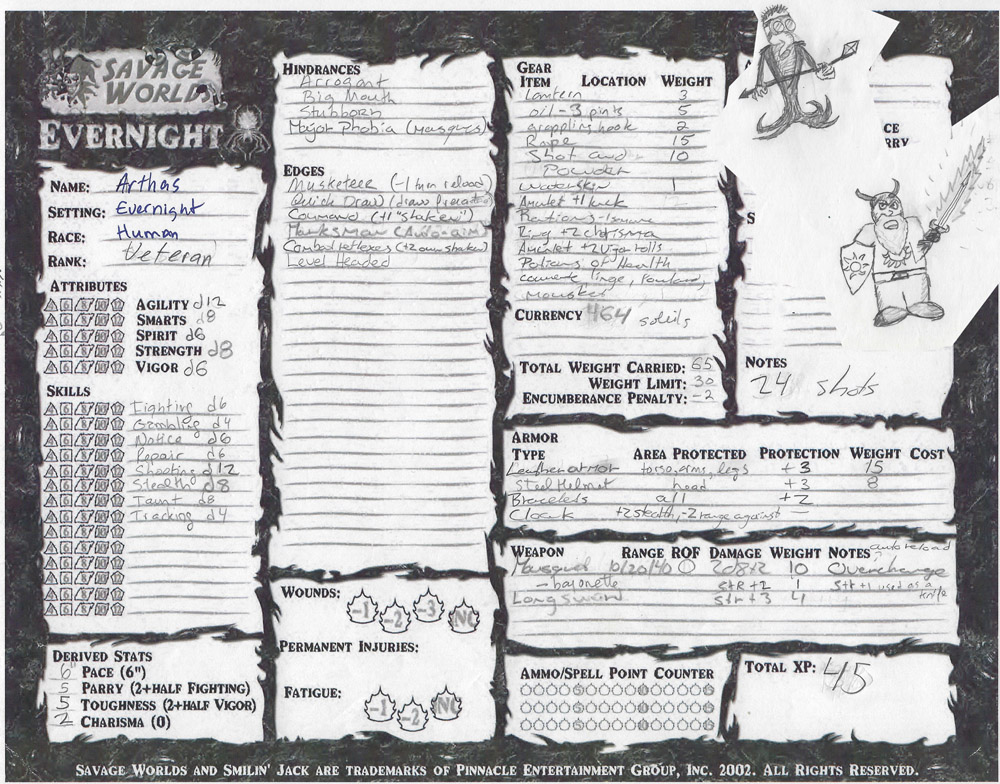 SAVAGE WORLDS
EVERNIGHT
NAME: Arthas
SETTING: Evernight
RACE: Human
RANK: Veteran
ATTRIBUTES
AGILITY d12
SMARTS d8
SPIRIT d6
STRENGTH d8
VIGOR d6
SKILLS
Fighting d6
Gambling d4
Notice d6
Repair d6
Shooting d12
Stealth d8
Taunt d8
Tracking d4
DERIVED STATS
6" PACE (6")
5 PARRY (2+HALF FIGHTING)
5 TOUGHNESS (2+HALF VIGOR)
2 CHARISMA (0)
HINDRANCES
Arrogant
Big Mouth
Stubborn
Major Phobia (Masques)
EDGES
Musketeer (-1 turn reload)
Quick Draw
Command
Marksman (Auto-aim)
Combat reflexes
Level Headed
WOUNDS: -1 -2 -3 INC
PERMANENT INJURIES:
FATIGUE: -1 -2 INC
GEAR
ITEM LOCATION WEIGHT
Lantern 3
oil - 3 pints 5
grappling hook 2
Rope 15
Shot and 10
Powder
waterskin 1
Amulet +1 luck
Rations-
Ring +2 charisma
Amulet +2 Vigor rolls
Potions of Health
CURRENCY 464 solids
TOTAL WEIGHT CARRIED: 65
WEIGHT LIMIT: 30
ENCUMBERANCE PENALTY: -2
CE
RRY
S
NOTES
24 shots
ARMOR
TYPE AREA PROTECTED PROTECTION WEIGHT COST
Leather armor torso, arms, legs +3 15
Steel Helmet head +3 8
Bracelets all +2
Cloak +2 stealth, -2 range against —
WEAPON RANGE ROF DAMAGE WEIGHT NOTES auto reload
10/20/40 1 2d8+2 10 Overcharge
- bayonette str +2 1 str +1 used as a knife
Long sword str +3 4
AMMO/SPELL POINT COUNTER
TOTAL XP: 45
SAVAGE WORLDS AND SMILIN' JACK ARE TRADEMARKS OF PINNACLE ENTERTAINMENT GROUP, INC. 2002. ALL RIGHTS RESERVED.